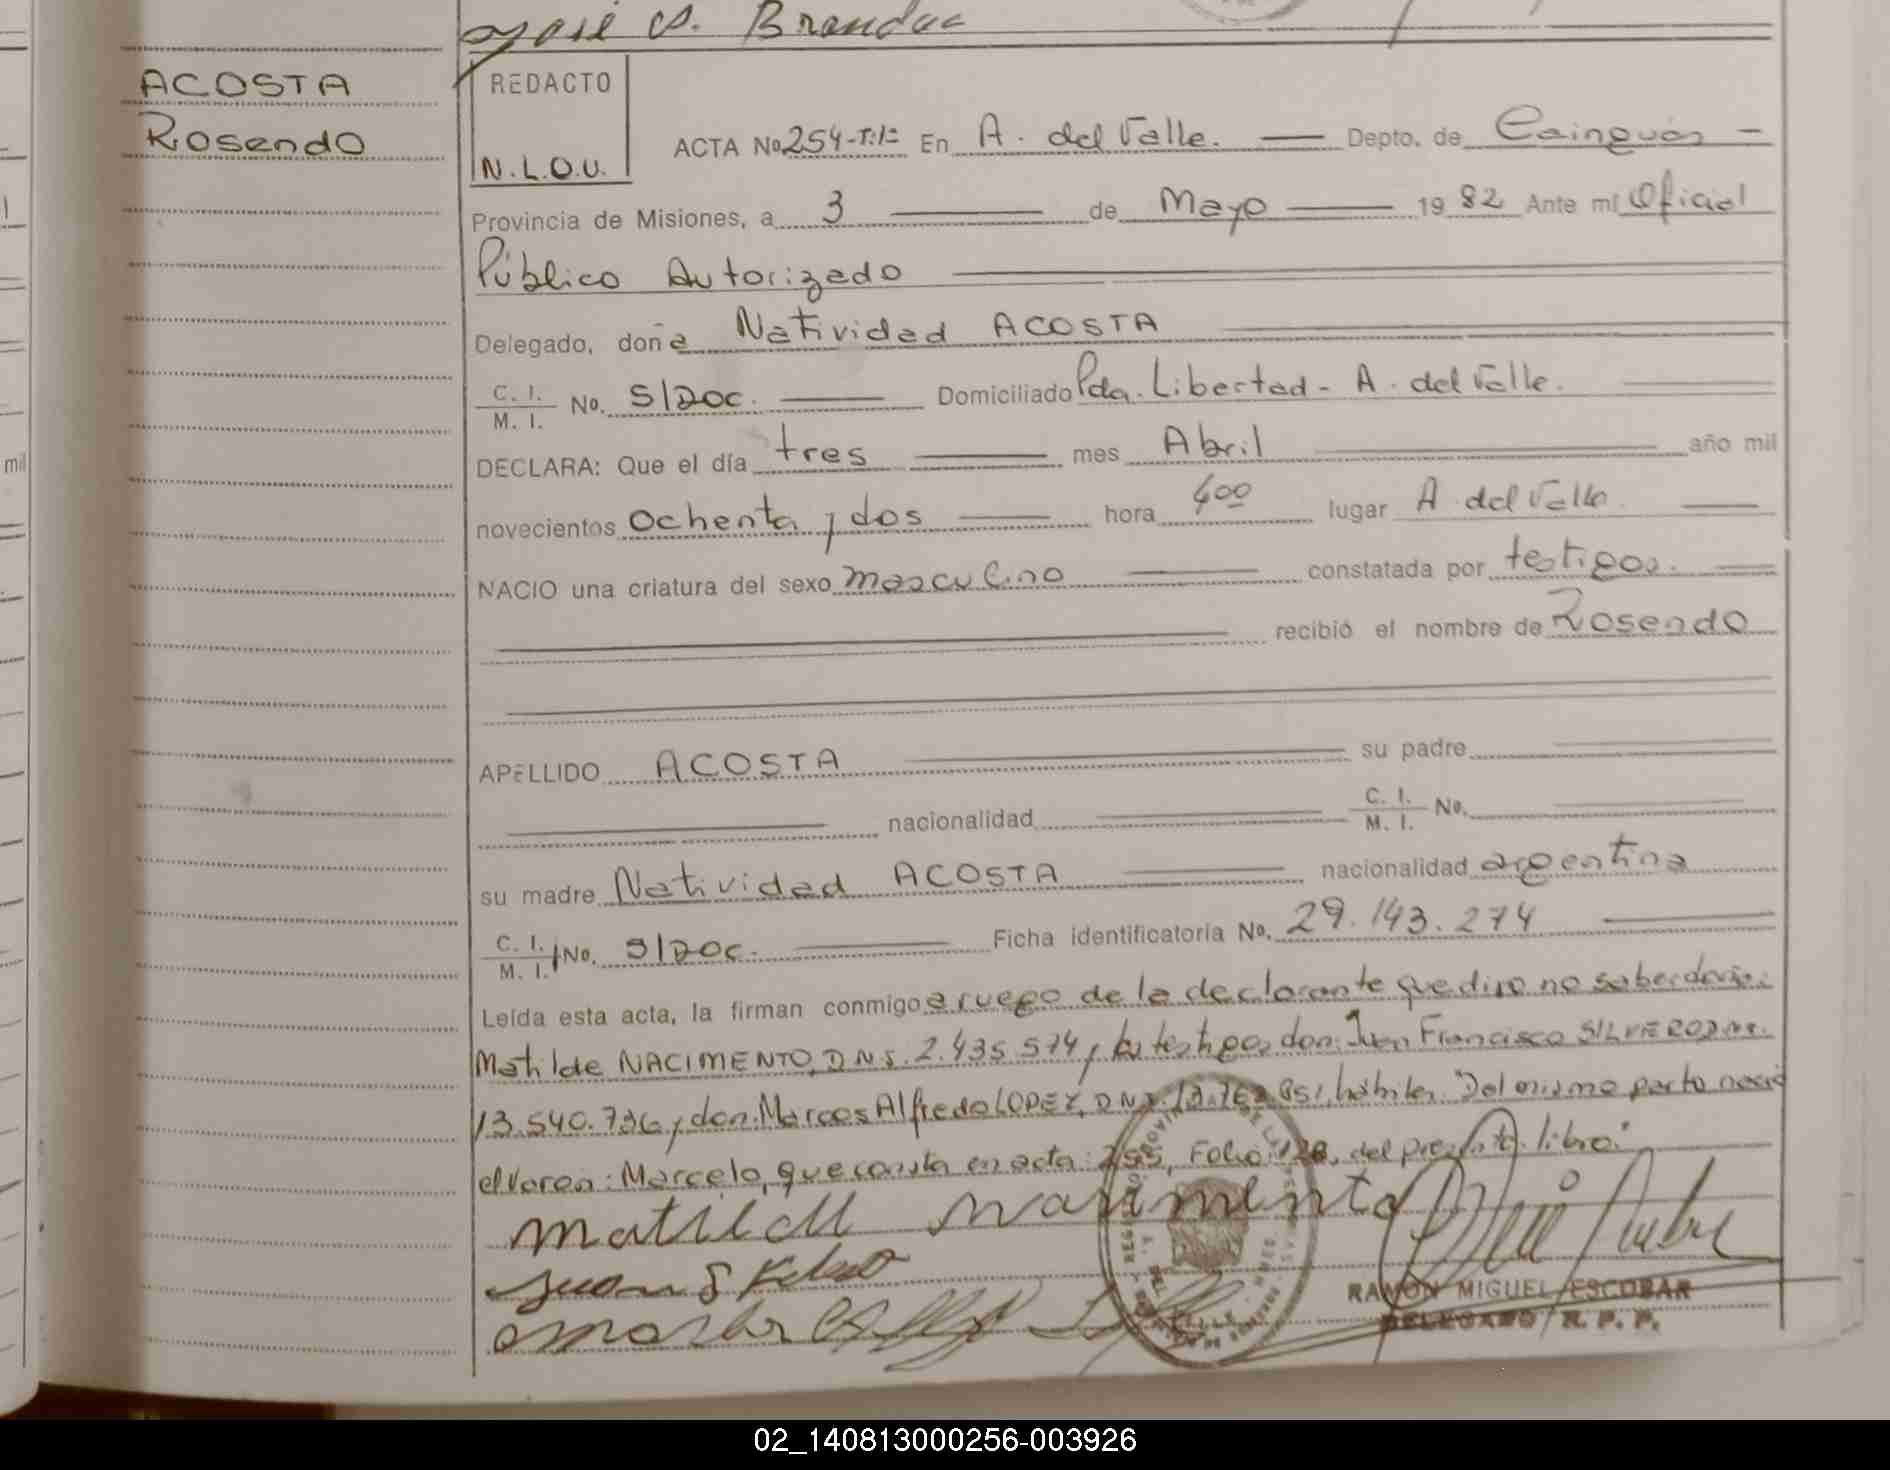 José A. Brandao
ACOSTA
Rosendo
REDACTO
N.L.O.U.
ACTA No. 254-T:1= En A. del Valle. Depto. de Cainguás -
Provincia de Misiones, a 3 de Mayo 1982 Ante mi Oficial
Público Autorizado
Delegado, doña Natividad ACOSTA
C. I. M. I. No. S/Doc. Domiciliado Pda. Libertad - A. del Valle.
DECLARA: Que el día tres mes Abril año mil
novecientos ochenta y dos hora 400 lugar A. del Valle
NACIO una criatura del sexo masculino constatada por testigos.
recibió el nombre de Rosendo
APELLIDO ACOSTA su padre
nacionalidad C. I. M. I. No.
su madre Natividad ACOSTA nacionalidad argentina
C. I. M. I. No. S/Doc. Ficha identificatoria No. 29.143.274
Leída esta acta, la firman conmigo a ruego de la declarante que dijo no saber
Matilde NACIMENTO, D.N.I. 2.435.574 y los testigos don: Juan Francisco
13.540.736 y don: Marcos Alfredo LOPEZ, D.N.I. hábiles. "Del mismo parto nació
el varon: Marcelo, que consta en acta: 255, Folio: 128, del presente libro."
Matilde Narimento
Juan
RAMON MIGUEL ESCOBAR
DELEGADO R. P. P.
mil
02_140813000256-003926